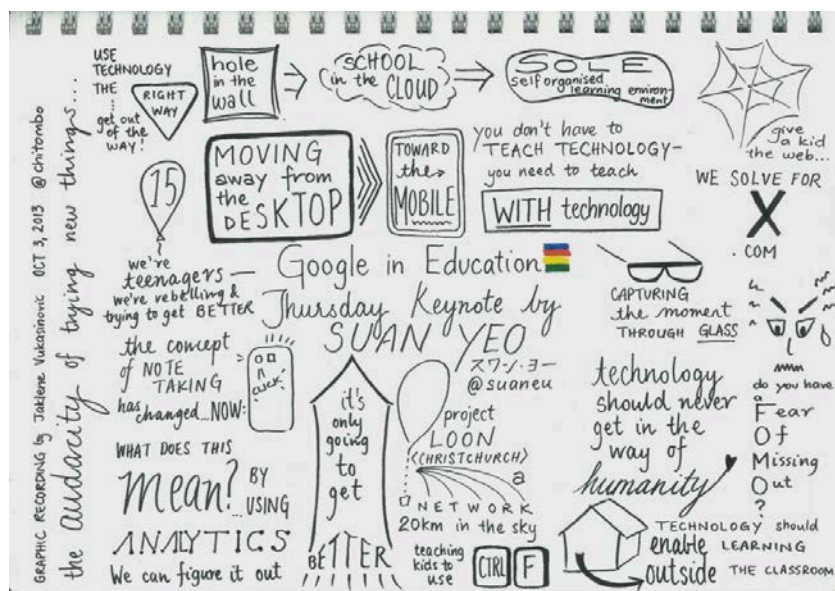 GRAPHIC RECORDING by Jaklene Vukasinovic OCT 3, 2013 @chitombo
the audacity of trying new things...
USE
TECHNOLOGY
THE
RIGHT
WAY
...get out
of the
WAY!
hole
in the
wall
SCHOOL
in the CLOUD
SOLE
self organised
learning environ-
ment
give
a kid
the web...
15
we're
teenagers—
we're rebelling &
trying to get BETTER
MOVING
away from
the
DESKTOP
TOWARD
the
MOBILE
you don't have to
TEACH TECHNOLOGY—
you need to teach
WITH technology
WE SOLVE FOR
X
.COM
Google in Education
Thursday Keynote by
SUAN YEO
スワン・ヨー
@suaneu
CAPTURING
the moment
THROUGH GLASS
the concept
of NOTE
TAKING
has changed...NOW:
click!
it's
only
going
to
get
BETTER
project
LOON
<CHRISTCHURCH>
a
NETWORK
20km in the sky
technology
should never
get in the
way of
humanity
do you have
a
Fear
Of
Missing
Out
?
WHAT DOES THIS
mean?
...BY
USING
ANALYTICS
We can figure it out
teaching
kids to
use
CTRL
F
TECHNOLOGY should
enable LEARNING
outside THE CLASSROOM